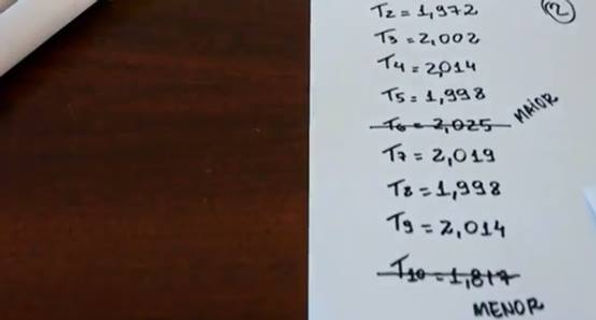 T2 = 1,972
(2)
T3 = 2,002
T4 = 2,014
T5 = 1,998
T6 = 2,025 MAIOR
T7 = 2,019
T8 = 1,998
T9 = 2,014
T10 = 1,817
MENOR